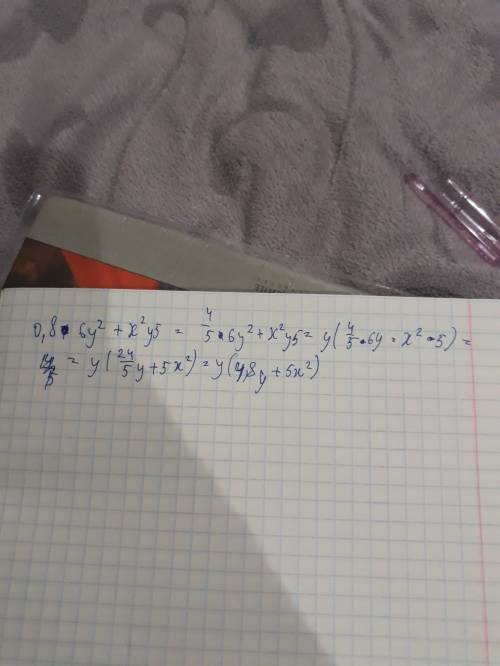 0,8 · 6y² + x²y5 = 4/5 · 6y² + x²y5 = y(4/5 · 6y · x² · 5) =
= y(24/5 y + 5x²) = y(4,8y + 5x²)